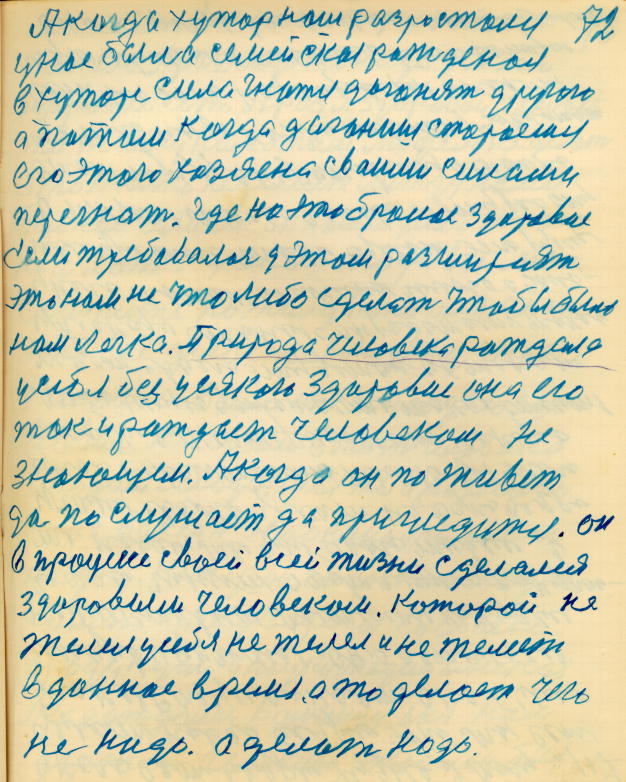 А когда хутор наш разростался 72
унас была семейская рождения
в хуторе сила гнати догонят другого
а потом когда догонили стараемся
его этого хазяена своими силами
перегнат. Где на это бралас здаровие
Если требавалося у этом разширят
это нам не что либо сделат чтобы было
нам легка. Природа человека рождала
усебя без усякого здаровие она его
так и рождает человеком не
знающем. А когда он по живет
да по слушает да пригледится. он
в процесе своей всей жизни сделался
здаровым человеком. Которой не
жалел усебя не жалел и не жалеет
в данное время, а то делает чего
не надо. а делат надо.